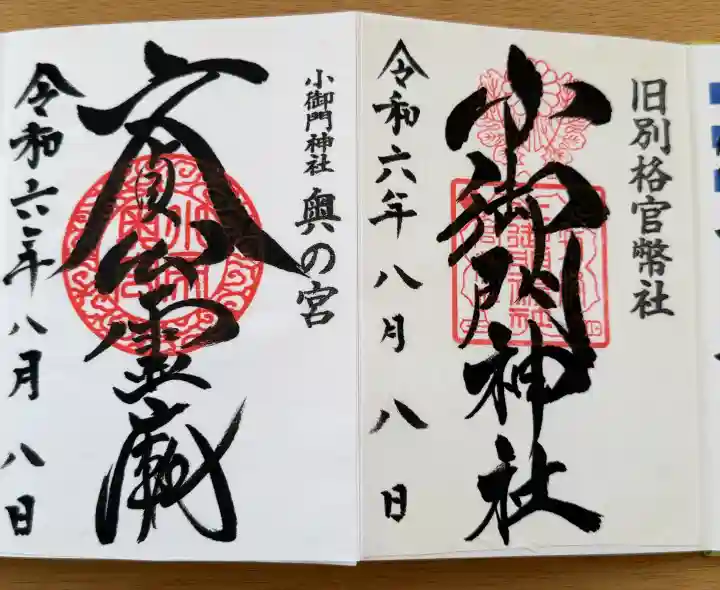 旧別格官幣社
小御門神社
令和六年八月八日
小御門神社 奥の宮
文貞公霊廟
令和六年八月八日